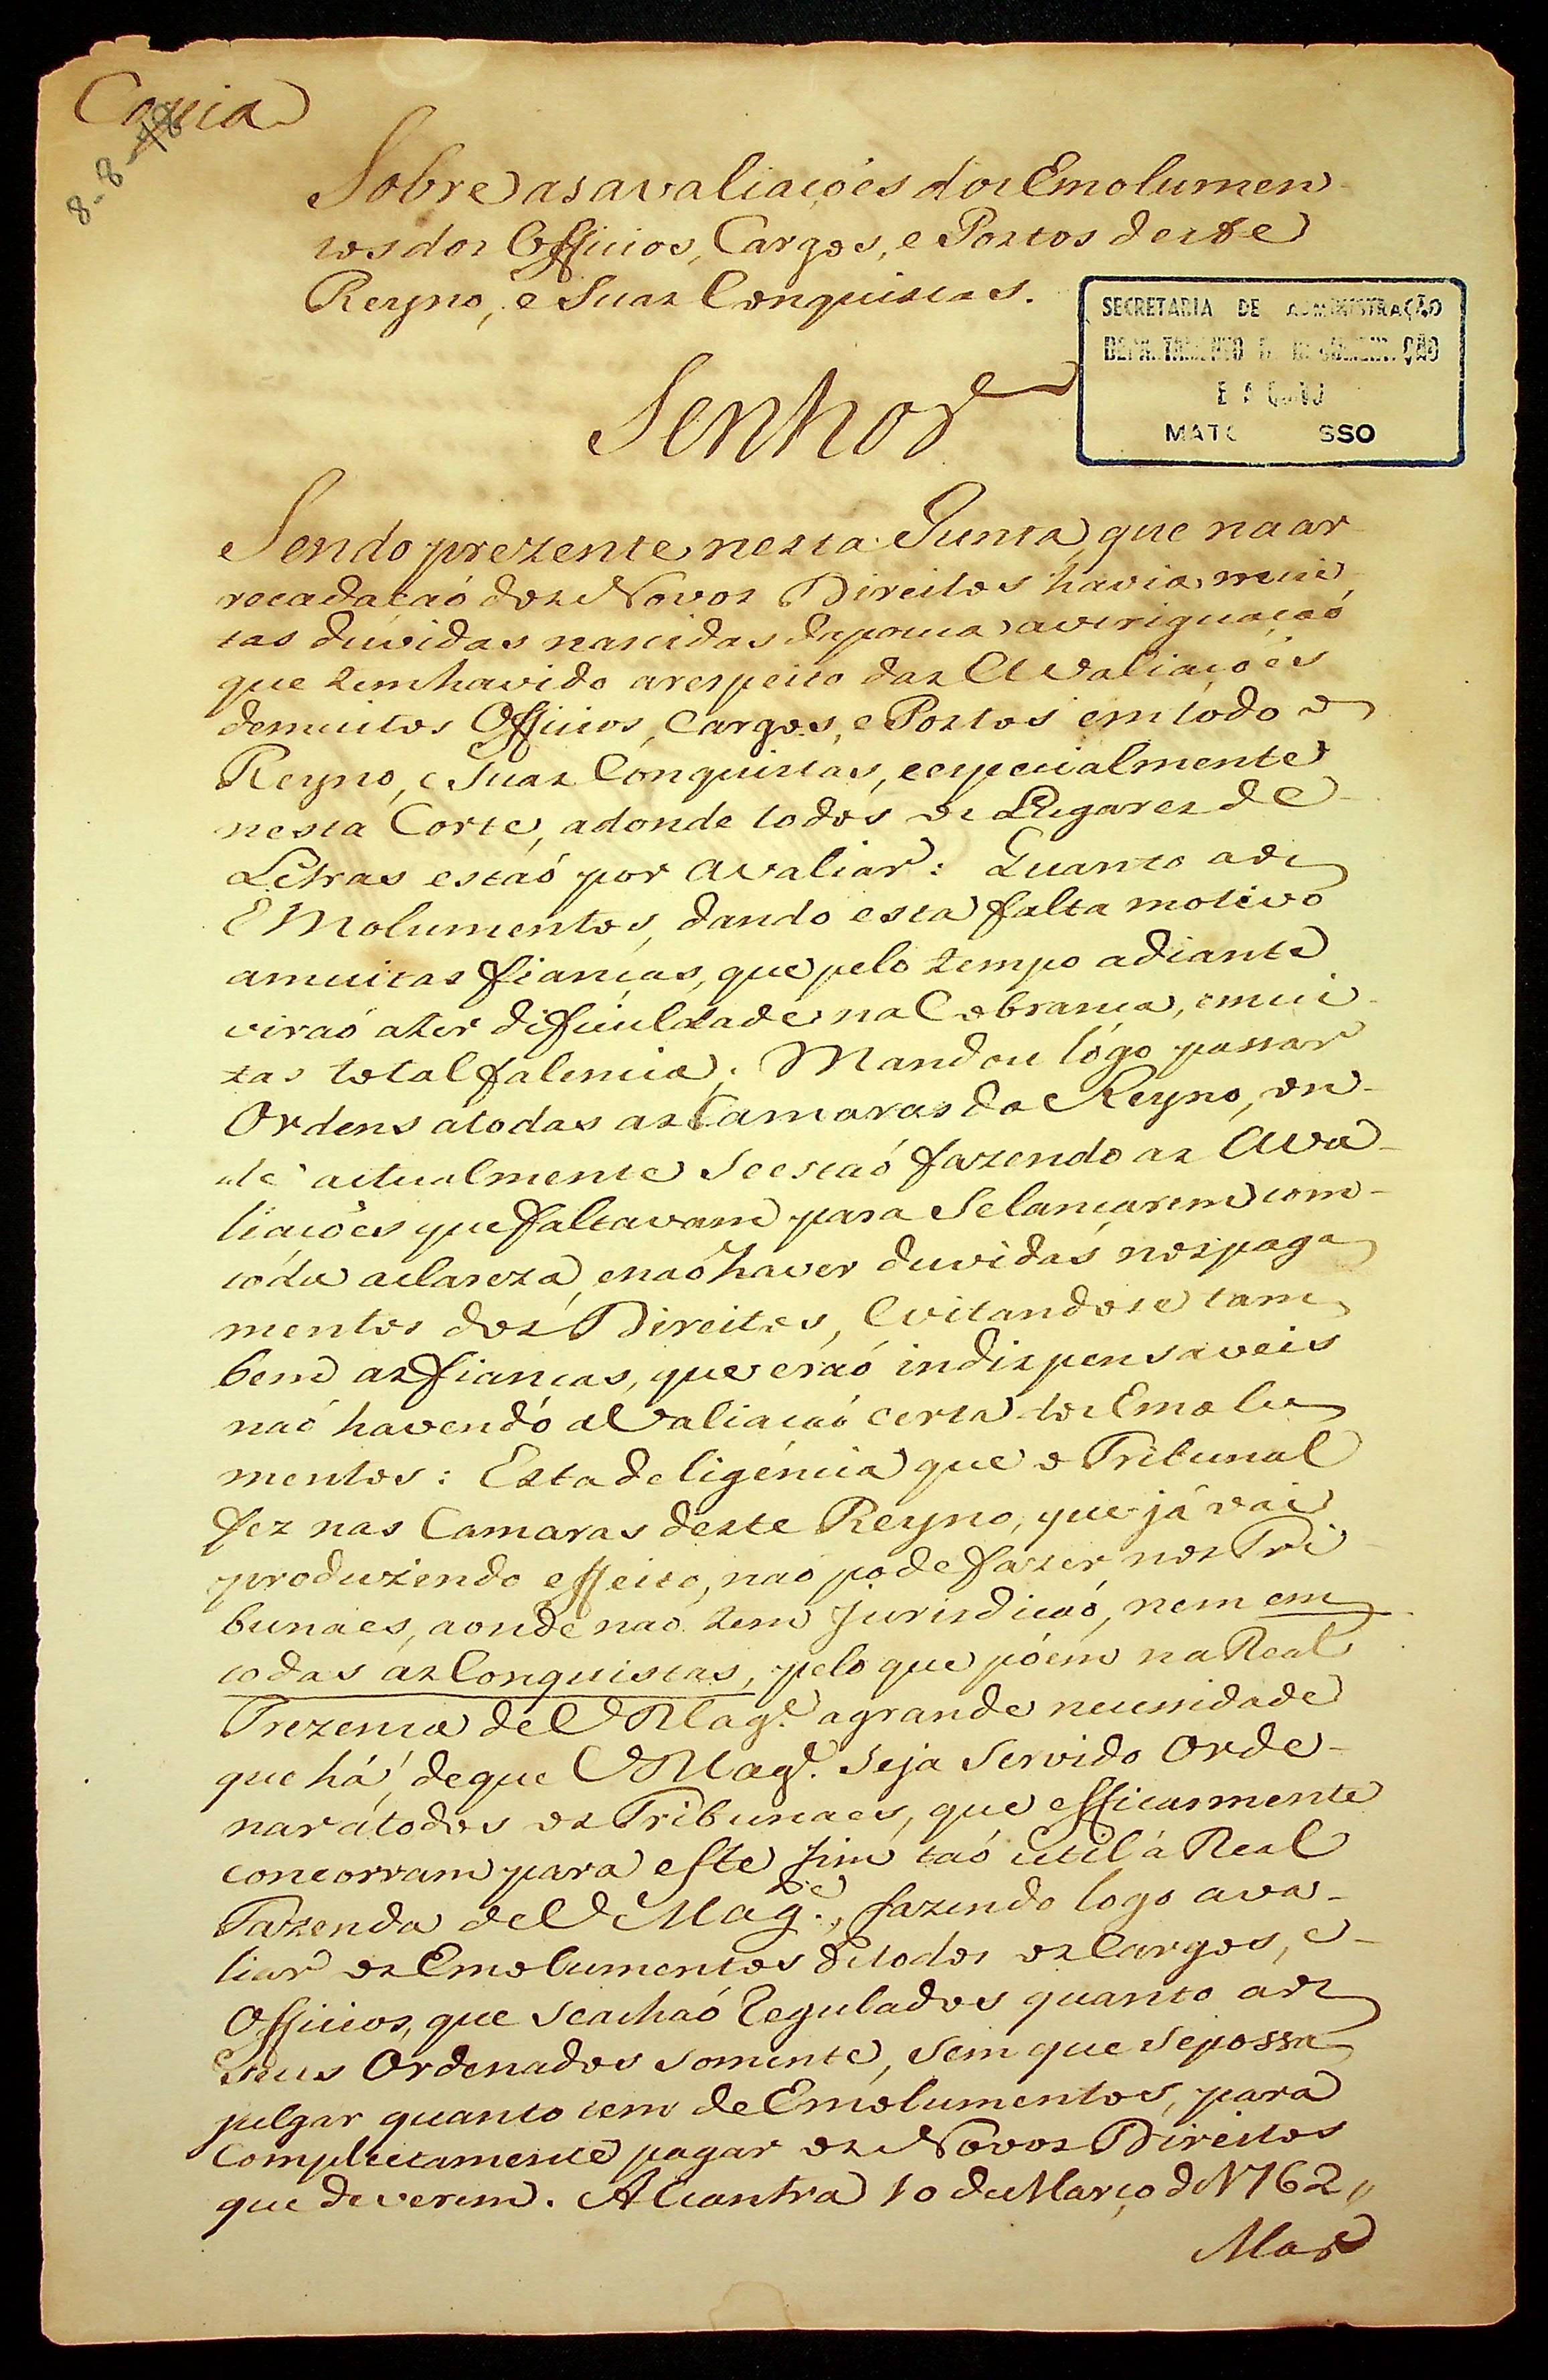 Copia
8-8-48
Sobre as avaliaçoẽs dos Emolumen-
tos dos Officios, Cargos, e Postos deste
Reyno, e Suas Conquistas.
SECRETARIA DE ADMINISTRAÇÃO
DEPARTAMENTO DE DOCUMENTAÇÃO
E A QUIVO
MATO SSO
Senhor
Sendo prezente nesta Junta, que na ar-
recadaçaõ dos Novos Direitos havia mui-
tas duvidas nascidas da pouca averiguaçaõ
que tem havido a respeito das Avaliaçoẽs
de muitos Officios, Cargos, e Postos em todo o
Reyno, e Suas Conquistas, e especialmente
nesta Corte, adonde todos os Lugares de
Letras estaõ por avaliar: Quanto aos
Emolumentos, dando esta falta motivo
a muitas fianças, que pelo tempo adiante
viraõ a ter dificuldade na Cobrança, e mui-
tas total falencia; Mandou lógo passar
Ordens a todas as Camaras do Reyno, on-
de actualmente Se estaõ fazendo as Ava-
liaçoẽs que faltavam para Se lançarem com
toda a clareza, e naõ haver duvidas nos paga
mentos dos Direitos, Evitandose tam
bem as fianças, que eraõ indispensaveis
naõ havendo aValiaçaõ certa dos Emolu
mentos: Esta deligencia que o Tribunal
fez nas Camaras deste Reyno, que já vai
produzindo effeito, naõ pode fazer nos Tri-
bunaes, aonde naõ tem jurisdiçaõ, nem em
todas as Conquistas, pelo que põem na Real
Prezença de V Mag.e a grande necessidade
que há, de que V Mag.e Seja Servido Orde-
nar a todos os Tribunaes, que efficasmente
concorram para este fim taõ util á Real
Fazenda de V Mag.de, fazendo logo ava-
liar os Emolumentos de todos os Cargos, e
Officios, que Se achaõ Regulados quanto aos
seus Ordenados somente, Sem que Se possa
julgar quanto tem de Emolumentos, para
Complectamente pagar os Novos Direitos
que deverem. Alcantra 10 de Março de 1762 //
Mar